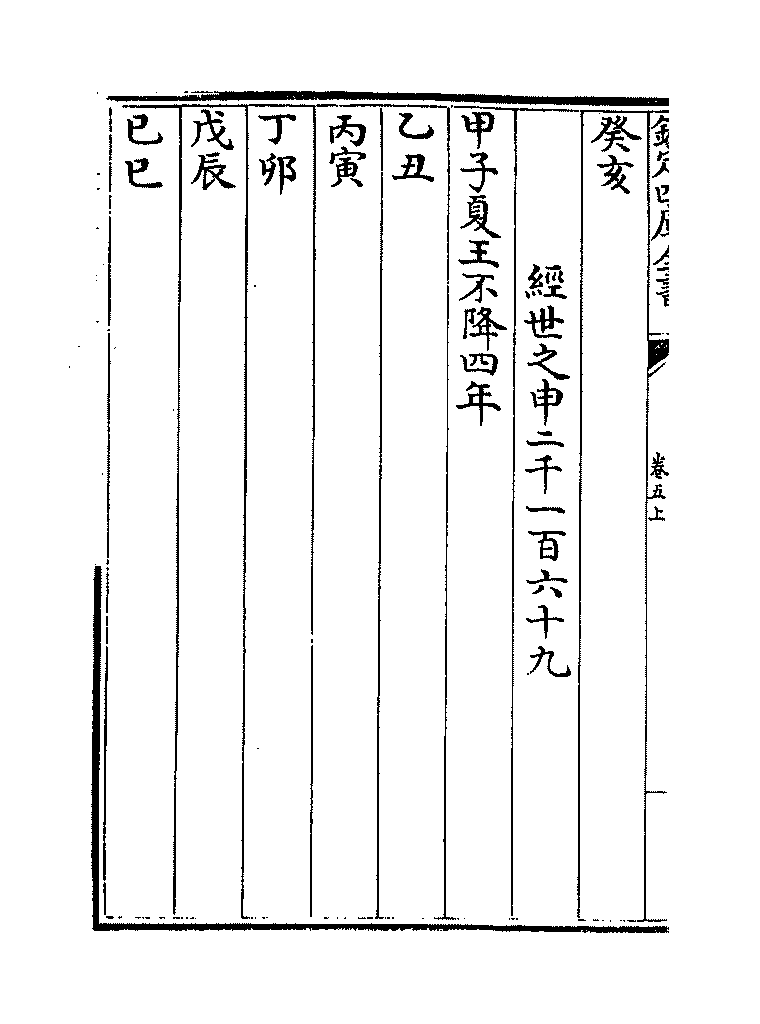 欽定四庫全書
卷五上
癸亥
經世之申二千一百六十九
甲子夏王不降四年
乙丑
丙寅
丁卯
戊辰
己巳